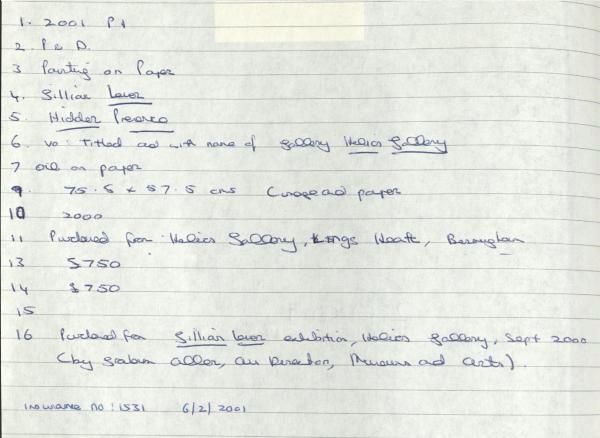 1. 2001 P1
2. P & D.
3 Painting on Paper
4. Gillian Lever
5. Hidden Presence
6. vo: Titled ad with name of gallery Helios Gallery
7 oil on paper
9. 75.5 x 57.5 cms (image ad paper
10 2000
11 Purchased from Helios Gallery, Kings Heath, Birmingham
13 £750
14 £750
15
16 Purchased from Gillian Lever exhibition, Helios Gallery, Sept 2000
(by Graham Allen, Director, Museums ad Arts).
Insurance no: 1531 6/2/2001